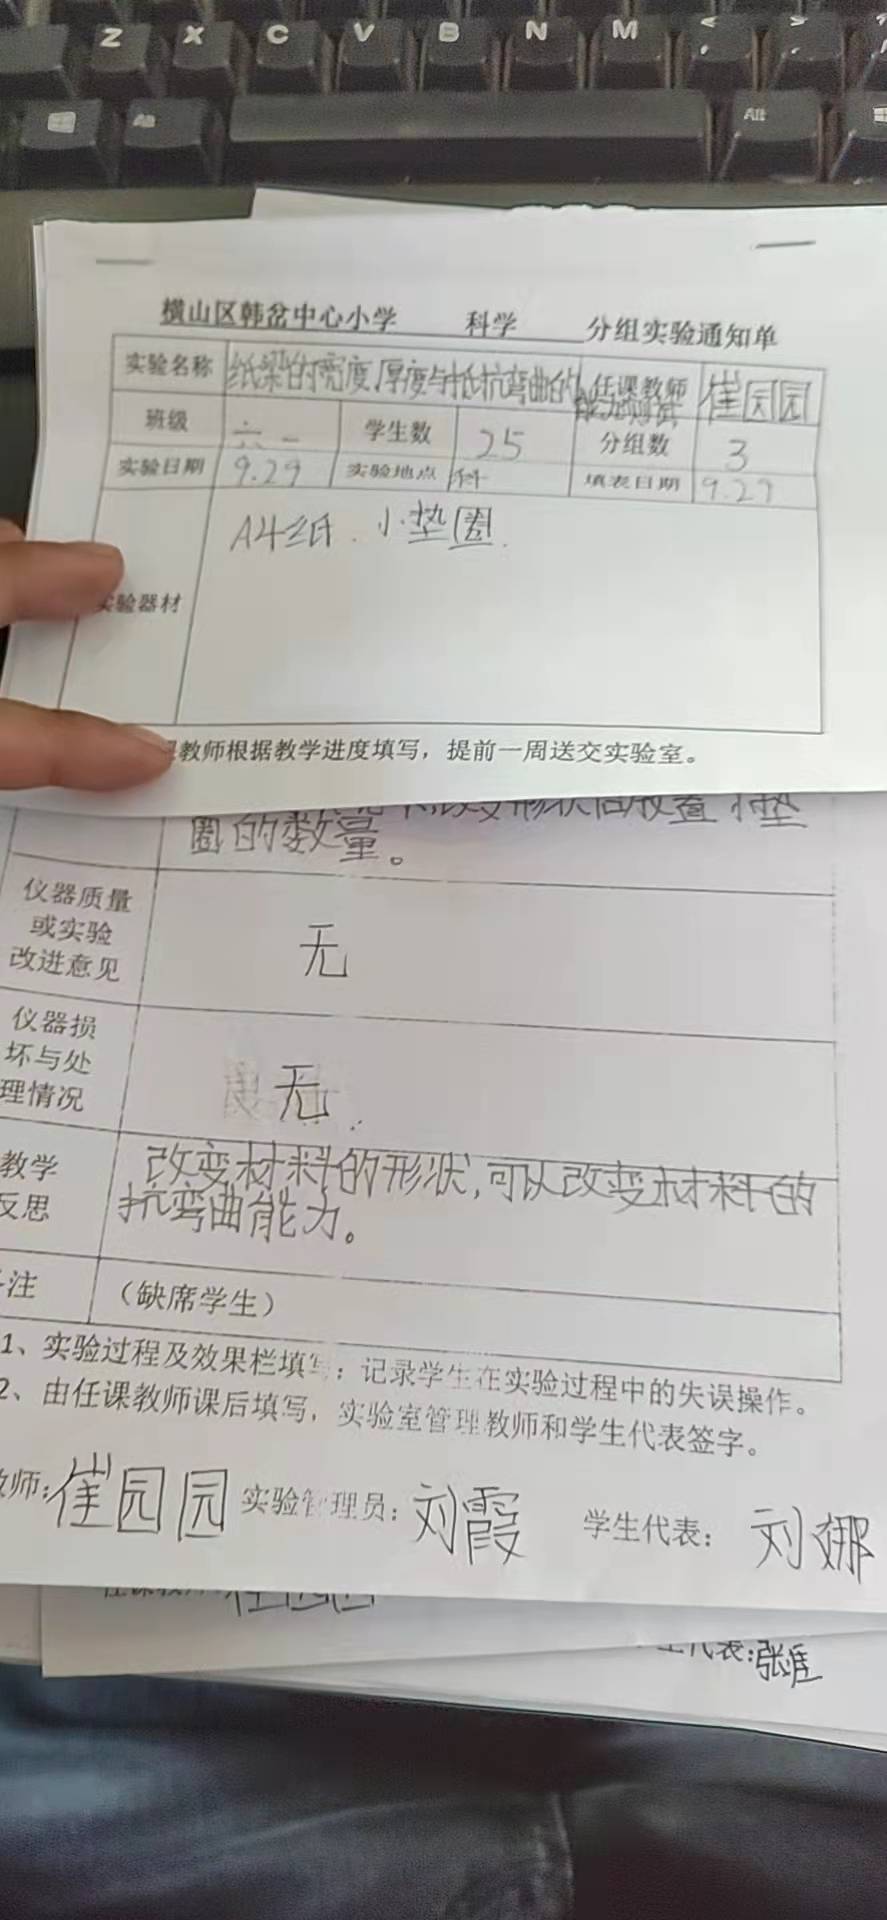 Z X C V B N M < >
Alt Alt
横山区韩岔中心小学 科学 分组实验通知单
实验名称 纸梁的宽度,厚度与抵抗弯曲的 任课教师 崔园园
班级 六一 学生数 25 分组数 3
实验日期 9.29 实验地点 科 填表日期 9.27
A4纸、小垫圈.
实验器材
课教师根据教学进度填写，提前一周送交实验室。
圈的数量。
仪器质量
或实验
改进意见
无
仪器损
坏与处
理情况
无.
教学
反思
改变材料的形状,可以改变材料的
抗弯曲能力。
注 （缺席学生）
1、实验过程及效果栏填写：记录学生在实验过程中的失误操作。
2、由任课教师课后填写，实验室管理教师和学生代表签字。
教师: 崔园园 实验管理员: 刘霞 学生代表: 刘娜
代表: